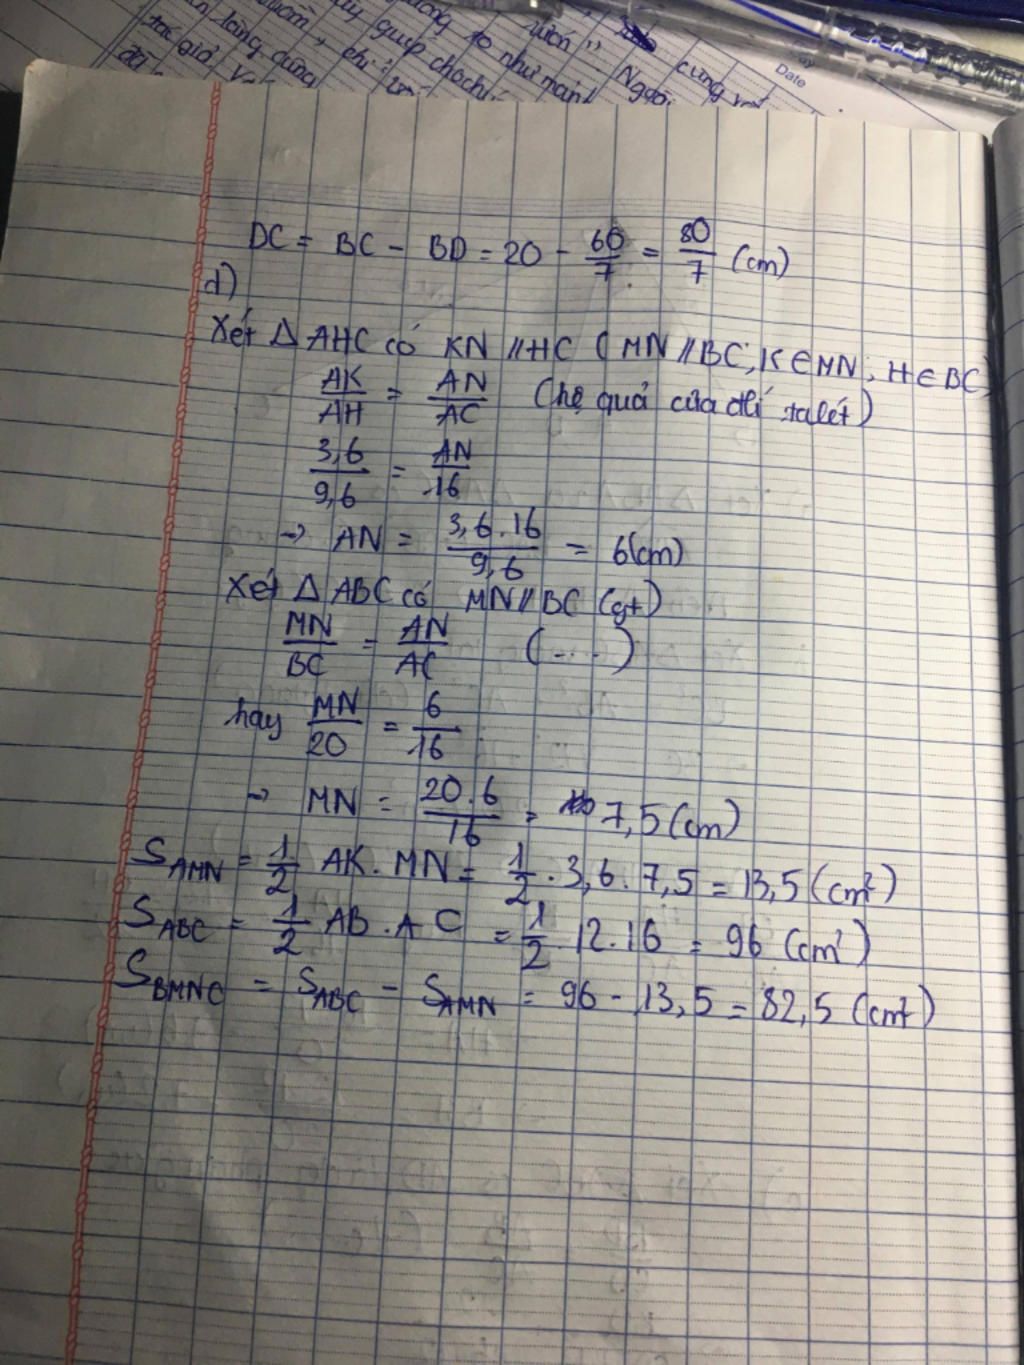 Date
DC = BC - BD = 20 - 60/7 = 80/7 (cm)
d)
Xét Δ AHC có KN // HC ( MN // BC, K ∈ MN, H ∈ BC)
AK/AH = AN/AC (hệ quả của đlí talét)
3,6/9,6 = AN/16
→ AN = 3,6.16/9,6 = 6(cm)
Xét Δ ABC có MN // BC (gt)
MN/BC = AN/AC (...)
hay MN/20 = 6/16
→ MN = 20.6/16 = 7,5 (cm)
S_AMN = 1/2 AK. MN = 1/2 . 3,6. 7,5 = 13,5 (cm²)
S_ABC = 1/2 AB. AC = 1/2 . 12.16 = 96 (cm²)
S_BMNC = S_ABC - S_AMN = 96 - 13,5 = 82,5 (cm²)